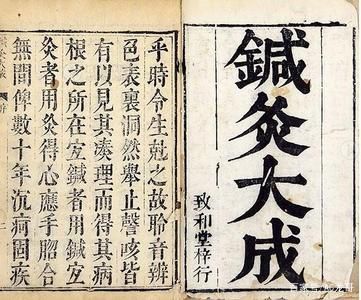 鍼灸大成
致和堂梓行
乎時令生尅之故聆音辨
色表裏洞然舉止聲咳皆
有以見其凑理而得其病
根之所在宜鍼者用鍼宜
灸者用灸得心應手脗合
無間俾數十年沉疴固疾